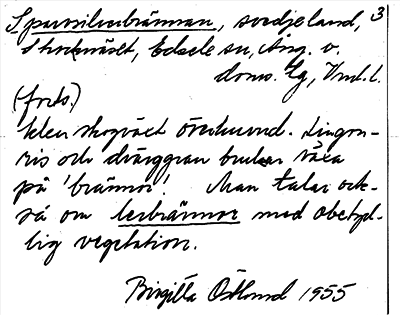 Sparsilverbrännan, svedjeland, 3
Stocknäset, Edsele sn, Ång. v.
doms. lg, Vnl. l.
(forts.)
klen skogväxt överhuvud. Lingon-
ris och dvärggran brukar växa
på 'brännor'. Man talar ock-
så om lerbrännor med obetyd-
lig vegetation.
Birgitta Östlund 1955